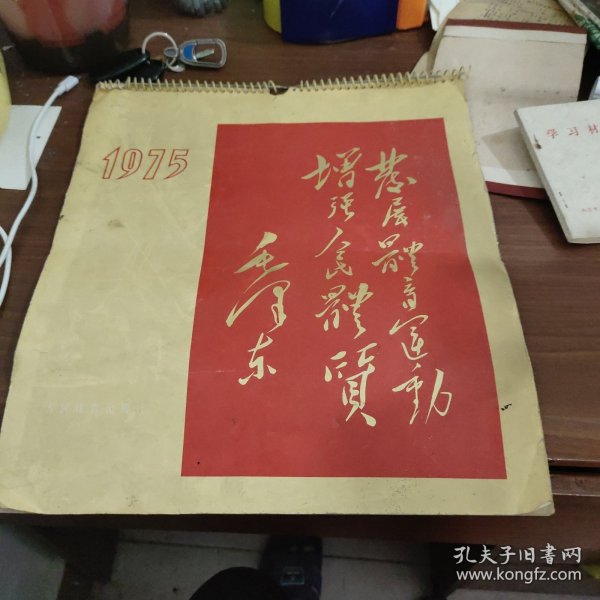 1975
發展體育運動
增強人民體質
毛泽东
学习材
孔夫子旧书网
www.kongfz.com